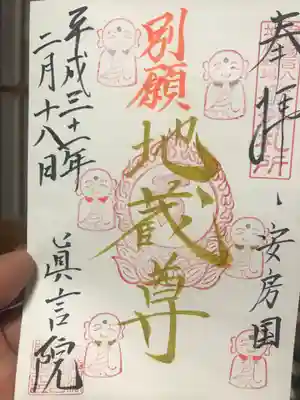 奉拝
、安房国
別願
地蔵尊
平成三十一年
二月十八日
眞言院